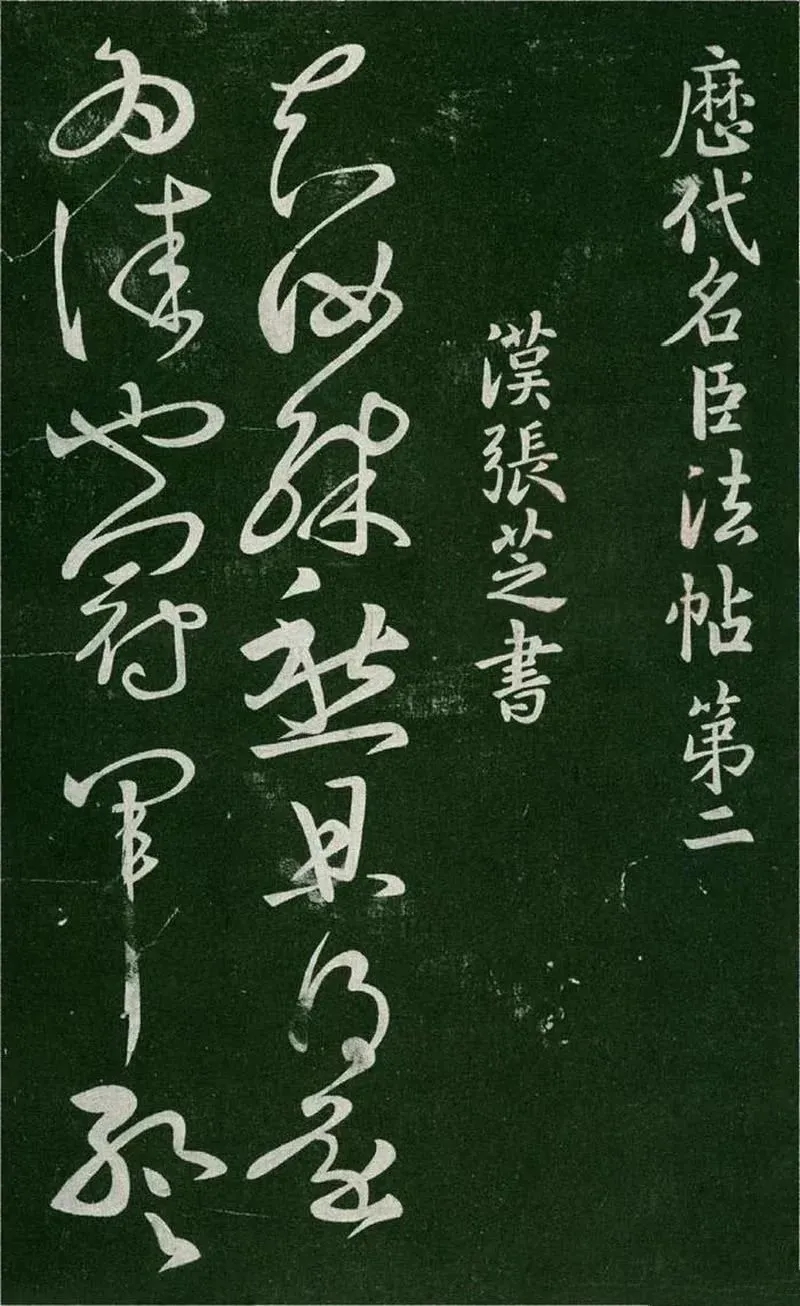 歷代名臣法帖第二
漢張芝書
知汝殊愁且得還
為佚也冠軍暫